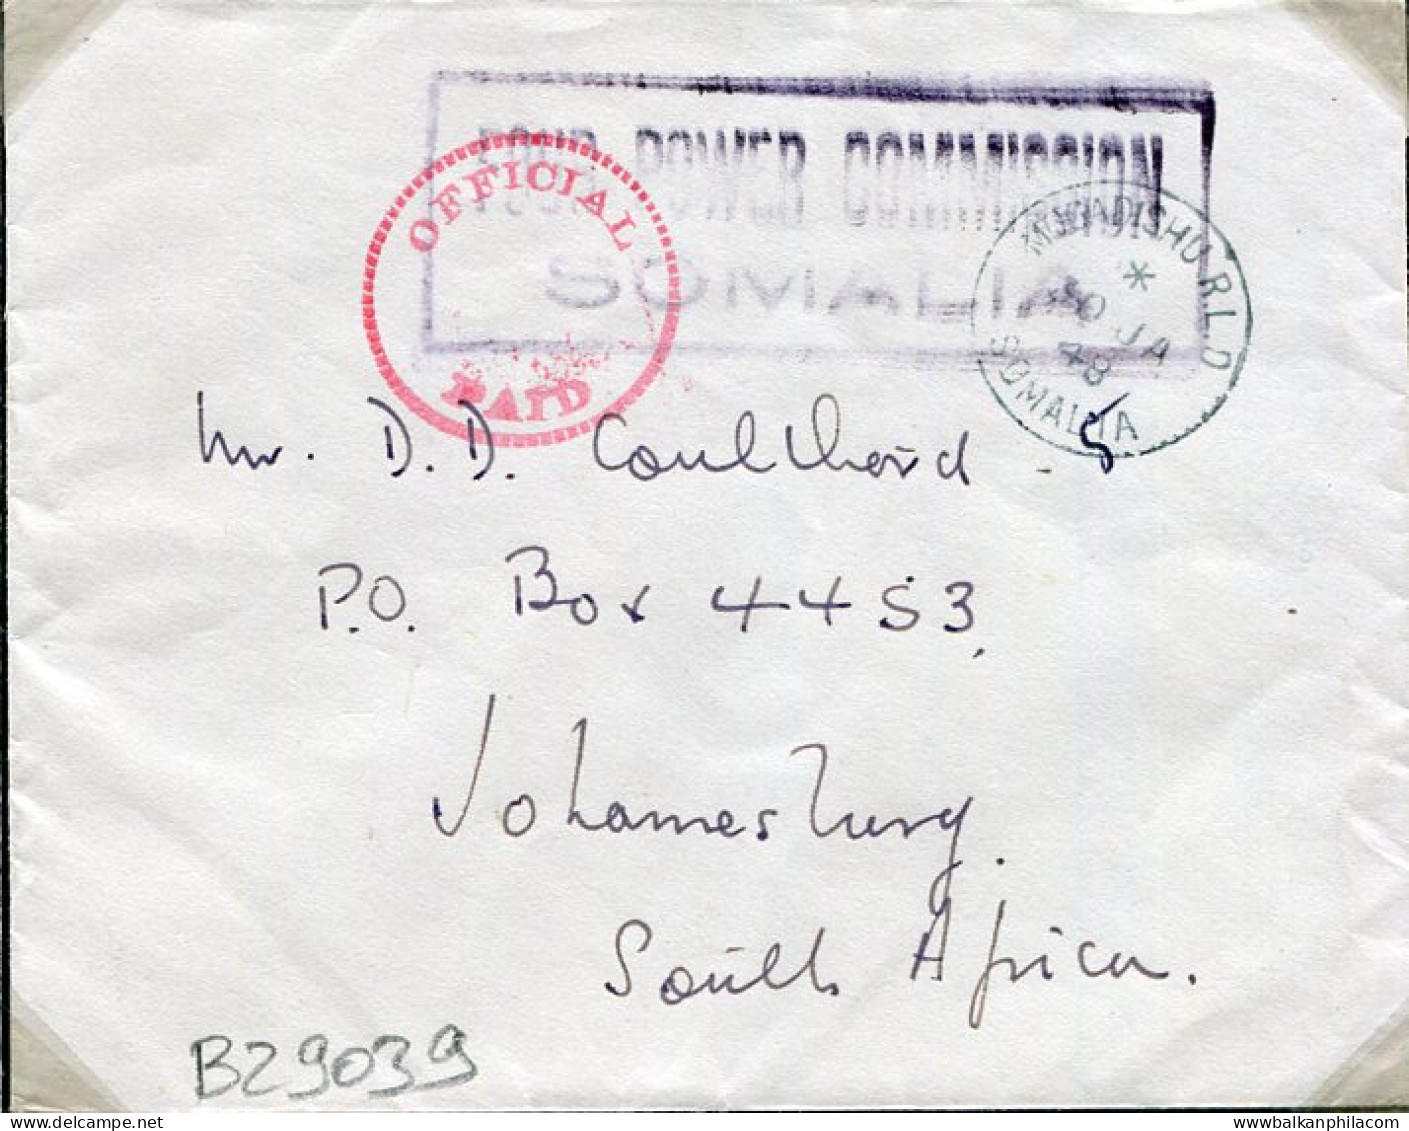 FOUR POWER COMMISSION
SOMALIA
OFFICIAL
PAID
MOGADISHU R.L.O
*
30 JA
48
SOMALIA
Mr. D. D. Coulthard
P.O. Box 4453,
Johannesburg.
South Africa.
B29039
www.delcampe.net
wwwbalkanphilacom